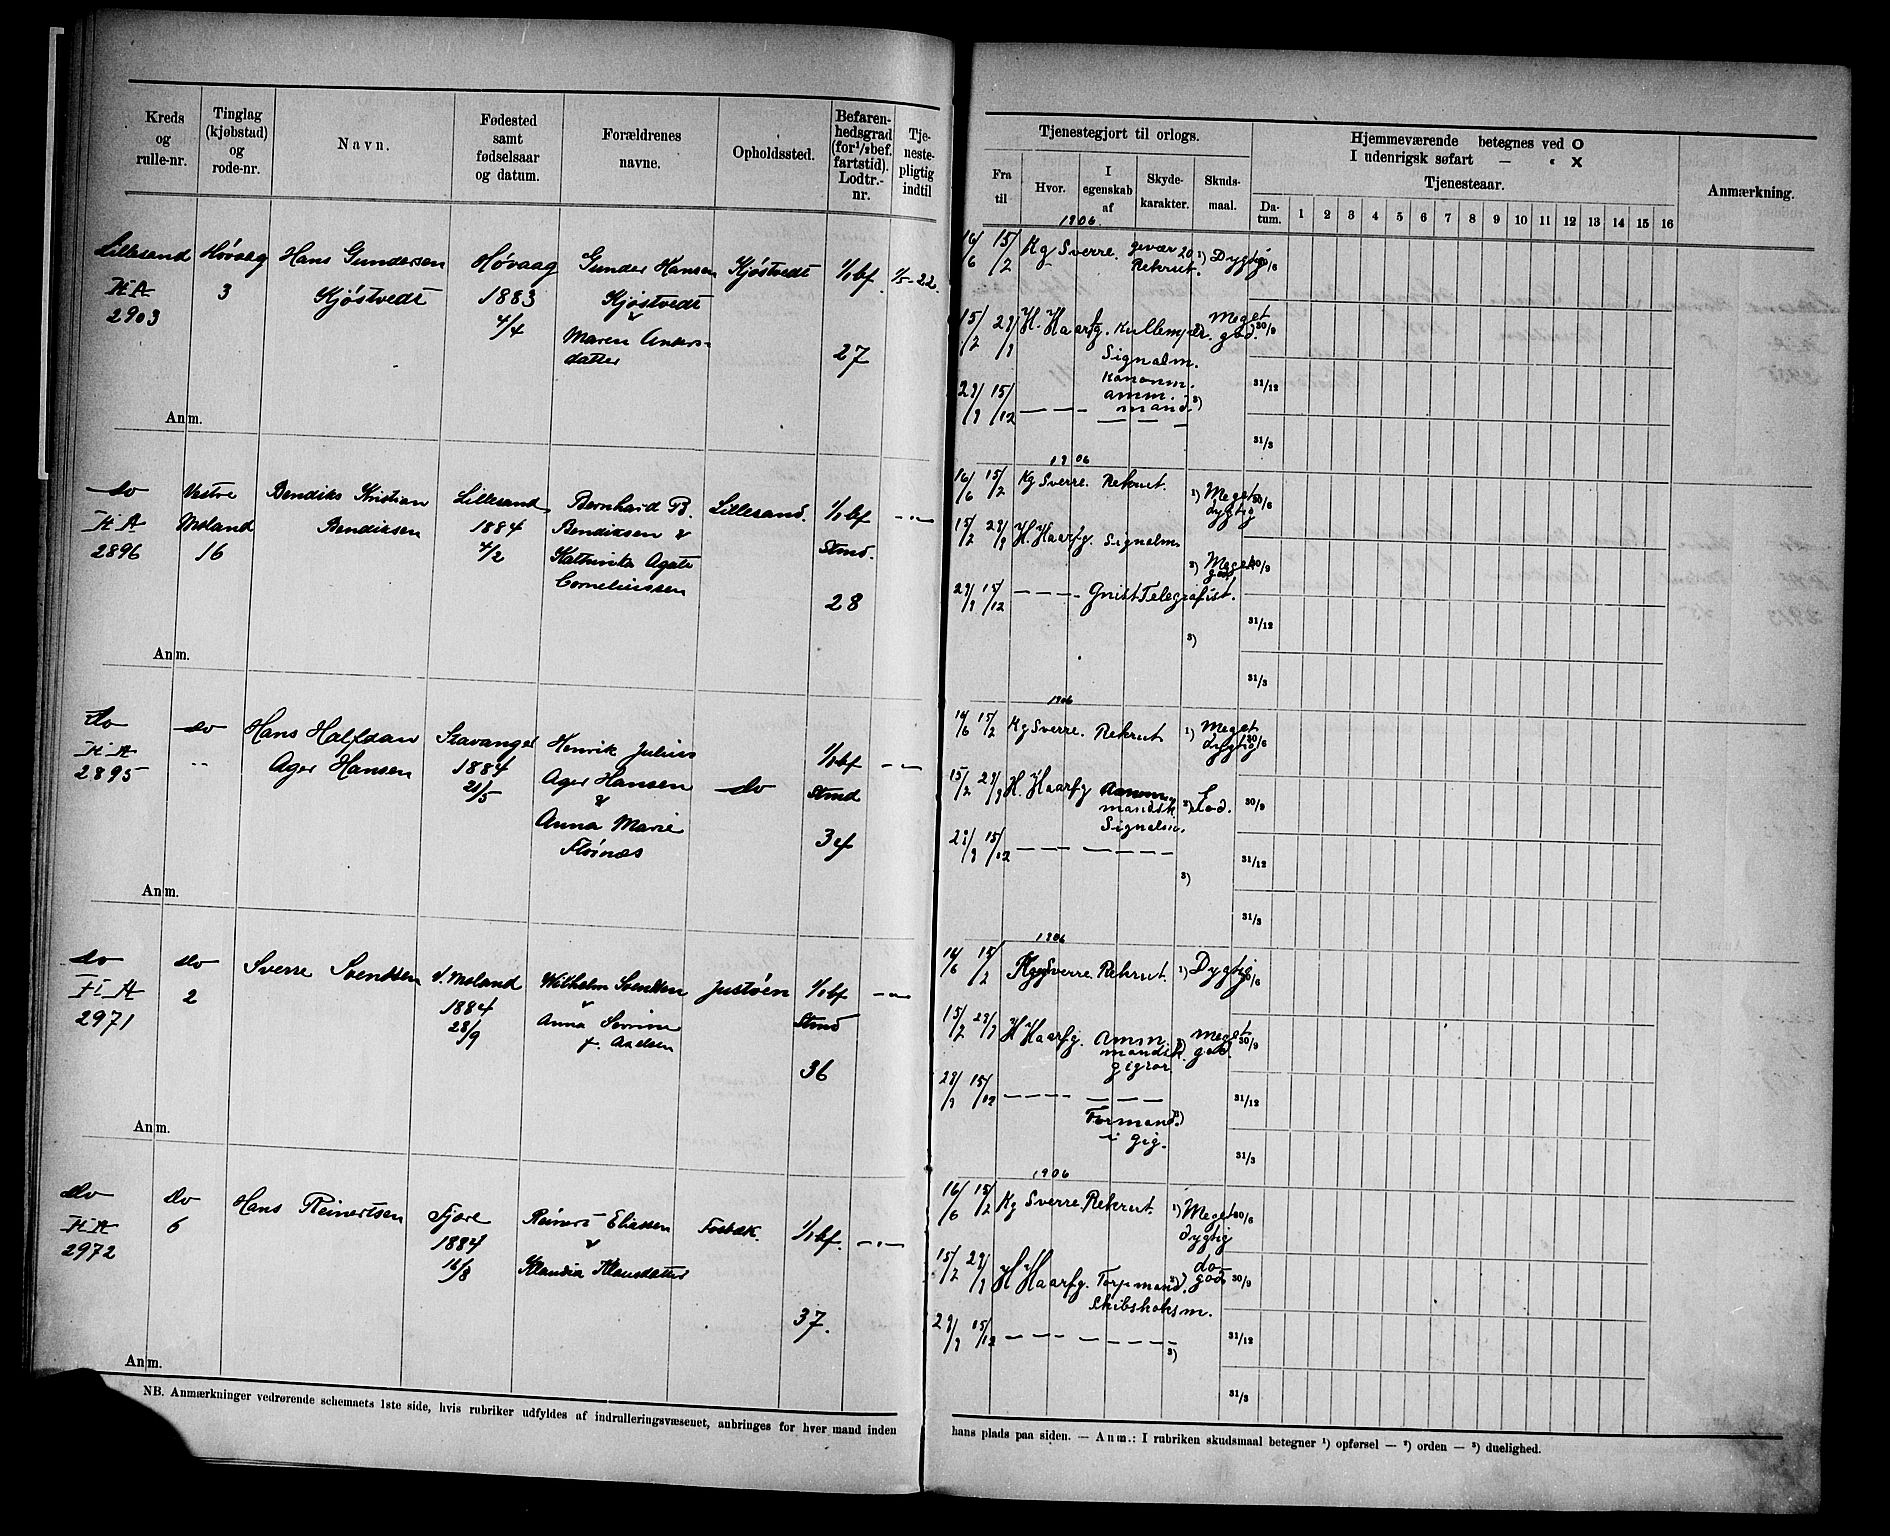 Kreds
og
rulle-nr.
Tinglag
(kjøbstad)
og
rode-nr.
Navn.
Fødested
samt
fødselsaar
og datum.
Forældrenes
navne.
Opholdssted.
Befaren-
hedsgrad
(for 1/2 bef.
fartstid).
Lodtr.-
nr.
Tje-
neste-
pligtig
indtil
Tjenestegjort til orlogs.
Fra
til
Hvor.
I
egenskab
af
Skyde-
karakter.
Skuds-
maal.
Hjemmeværende betegnes ved O
I udenrigsk søfart — " X
Tjenesteaar.
Da-
tum.
1 2 3 4 5 6 7 8 9 10 11 12 13 14 15 16
Anmærkning.
Lillesand
II A
2903
Høvaag
3
Hans Gundersen
Kjöstvedt
Høvaag
1883
4/4
Gunder Hansen
Kjöstvedt
&
Maren Anders-
datter
Kjöstvedt
1/1 bf.
27
1/5-22.
1906.
16/6 15/2 Kg Sverre. gevær 20
Rekrut. 1) Dygtig 30/6
15/2 28/9 H. Haarfg. Kullemper.
Signalm.
Kanonm.
2) Meget
god. 30/9
28/9 15/12 — — — amm.
mand. 3)
— — —
31/12
31/3
Anm.
do
II A
2896
Vestre
Moland
16
Bendiks Kristian
Bendiksen
Lillesand
1884
4/2
Bernhard B.
Bendiksen &
Kathinka Agate
Corneliussen
Lillesand.
1/1 bf
Stmd.
28
— " —
1906
16/6 15/2 Kg Sverre. Rekrut. 1) Meget
dygtig 30/6
15/2 28/9 H. Haarfg. Signalm
2) Meget
god 30/9
28/9 15/12 — — — — Gnist Telegrafist.
3)
31/12
31/3
Anm.
do
II A
2895
do
"
Hans Halfdan
Ager Hansen
Stavanger
1884
21/5
Henrik Julius
Ager Hansen
&
Anna Marie
Flöinæs
do
1/1 bf
Stmd
34
— " —
1906
16/6 15/2 Kg Sverre. Rekrut 1) Meget
dygtig 30/6
15/2 28/9 H. Haarfg
mandsk.
Signalm.
2) God. 30/9
28/9 15/12 — — — — — — —
3)
31/12
31/3
Anm.
do
II A
2971
do
2
Sverre Svendsen
V. Moland
1884
28/9
Wilhelm Svendsen
&
Anna Serine
f. Axelsen
Justöen
1/1 bf
Stmd
36
— " —
1906
16/6 15/2 Kg Sverre. Rekrut. 1) Dygtig 30/6
15/2 28/9 H Haarfg. Amm.
mandsk.
gigror
2) meget
god. 30/9
28/9 15/12 — — — — — — —
Formand 3)
i gig.
31/12
31/3
Anm.
do
II A
2972
do
6
Hans Reinertsen
Fjære
1884
16/8
Reinert Eliassen
&
Klaudia Klausdatter
Fosbæk.
1/1 bf.
37.
— " —
1906
16/6 15/2 Kg Sverre. Rekrut. 1) Meget
dygtig 30/6
15/2 28/9 H Haarfg. Torpmand.
Skibskoksm.
2) do
god 30/9
28/9 15/12 — — — — — — —
3)
31/12
31/3
Anm.
NB. Anmærkninger vedrørende schemaets 1ste side, hvis rubriker udfyldes af indrulleringsvæsenet, anbringes for hver mand inden
hans plads paa siden. — Anm.: I rubriken skudsmaal betegner 1) opførsel — 2) orden — 3) duelighed.